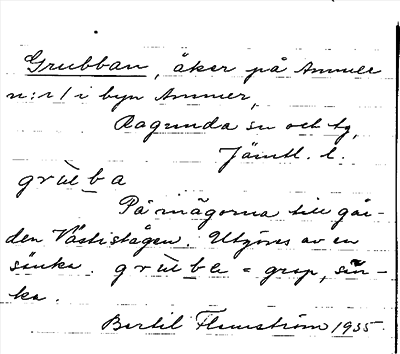 Grubban, åker på Ammer
n:r 1 i byn Ammer,
Ragunda sn och tg,
Jämtl. l.
grùb a
På inägorna till går-
den Västistågen. Utgöres av en
sänka. grùb e = grop, sän-
ka.
Bertil Flemström 1935